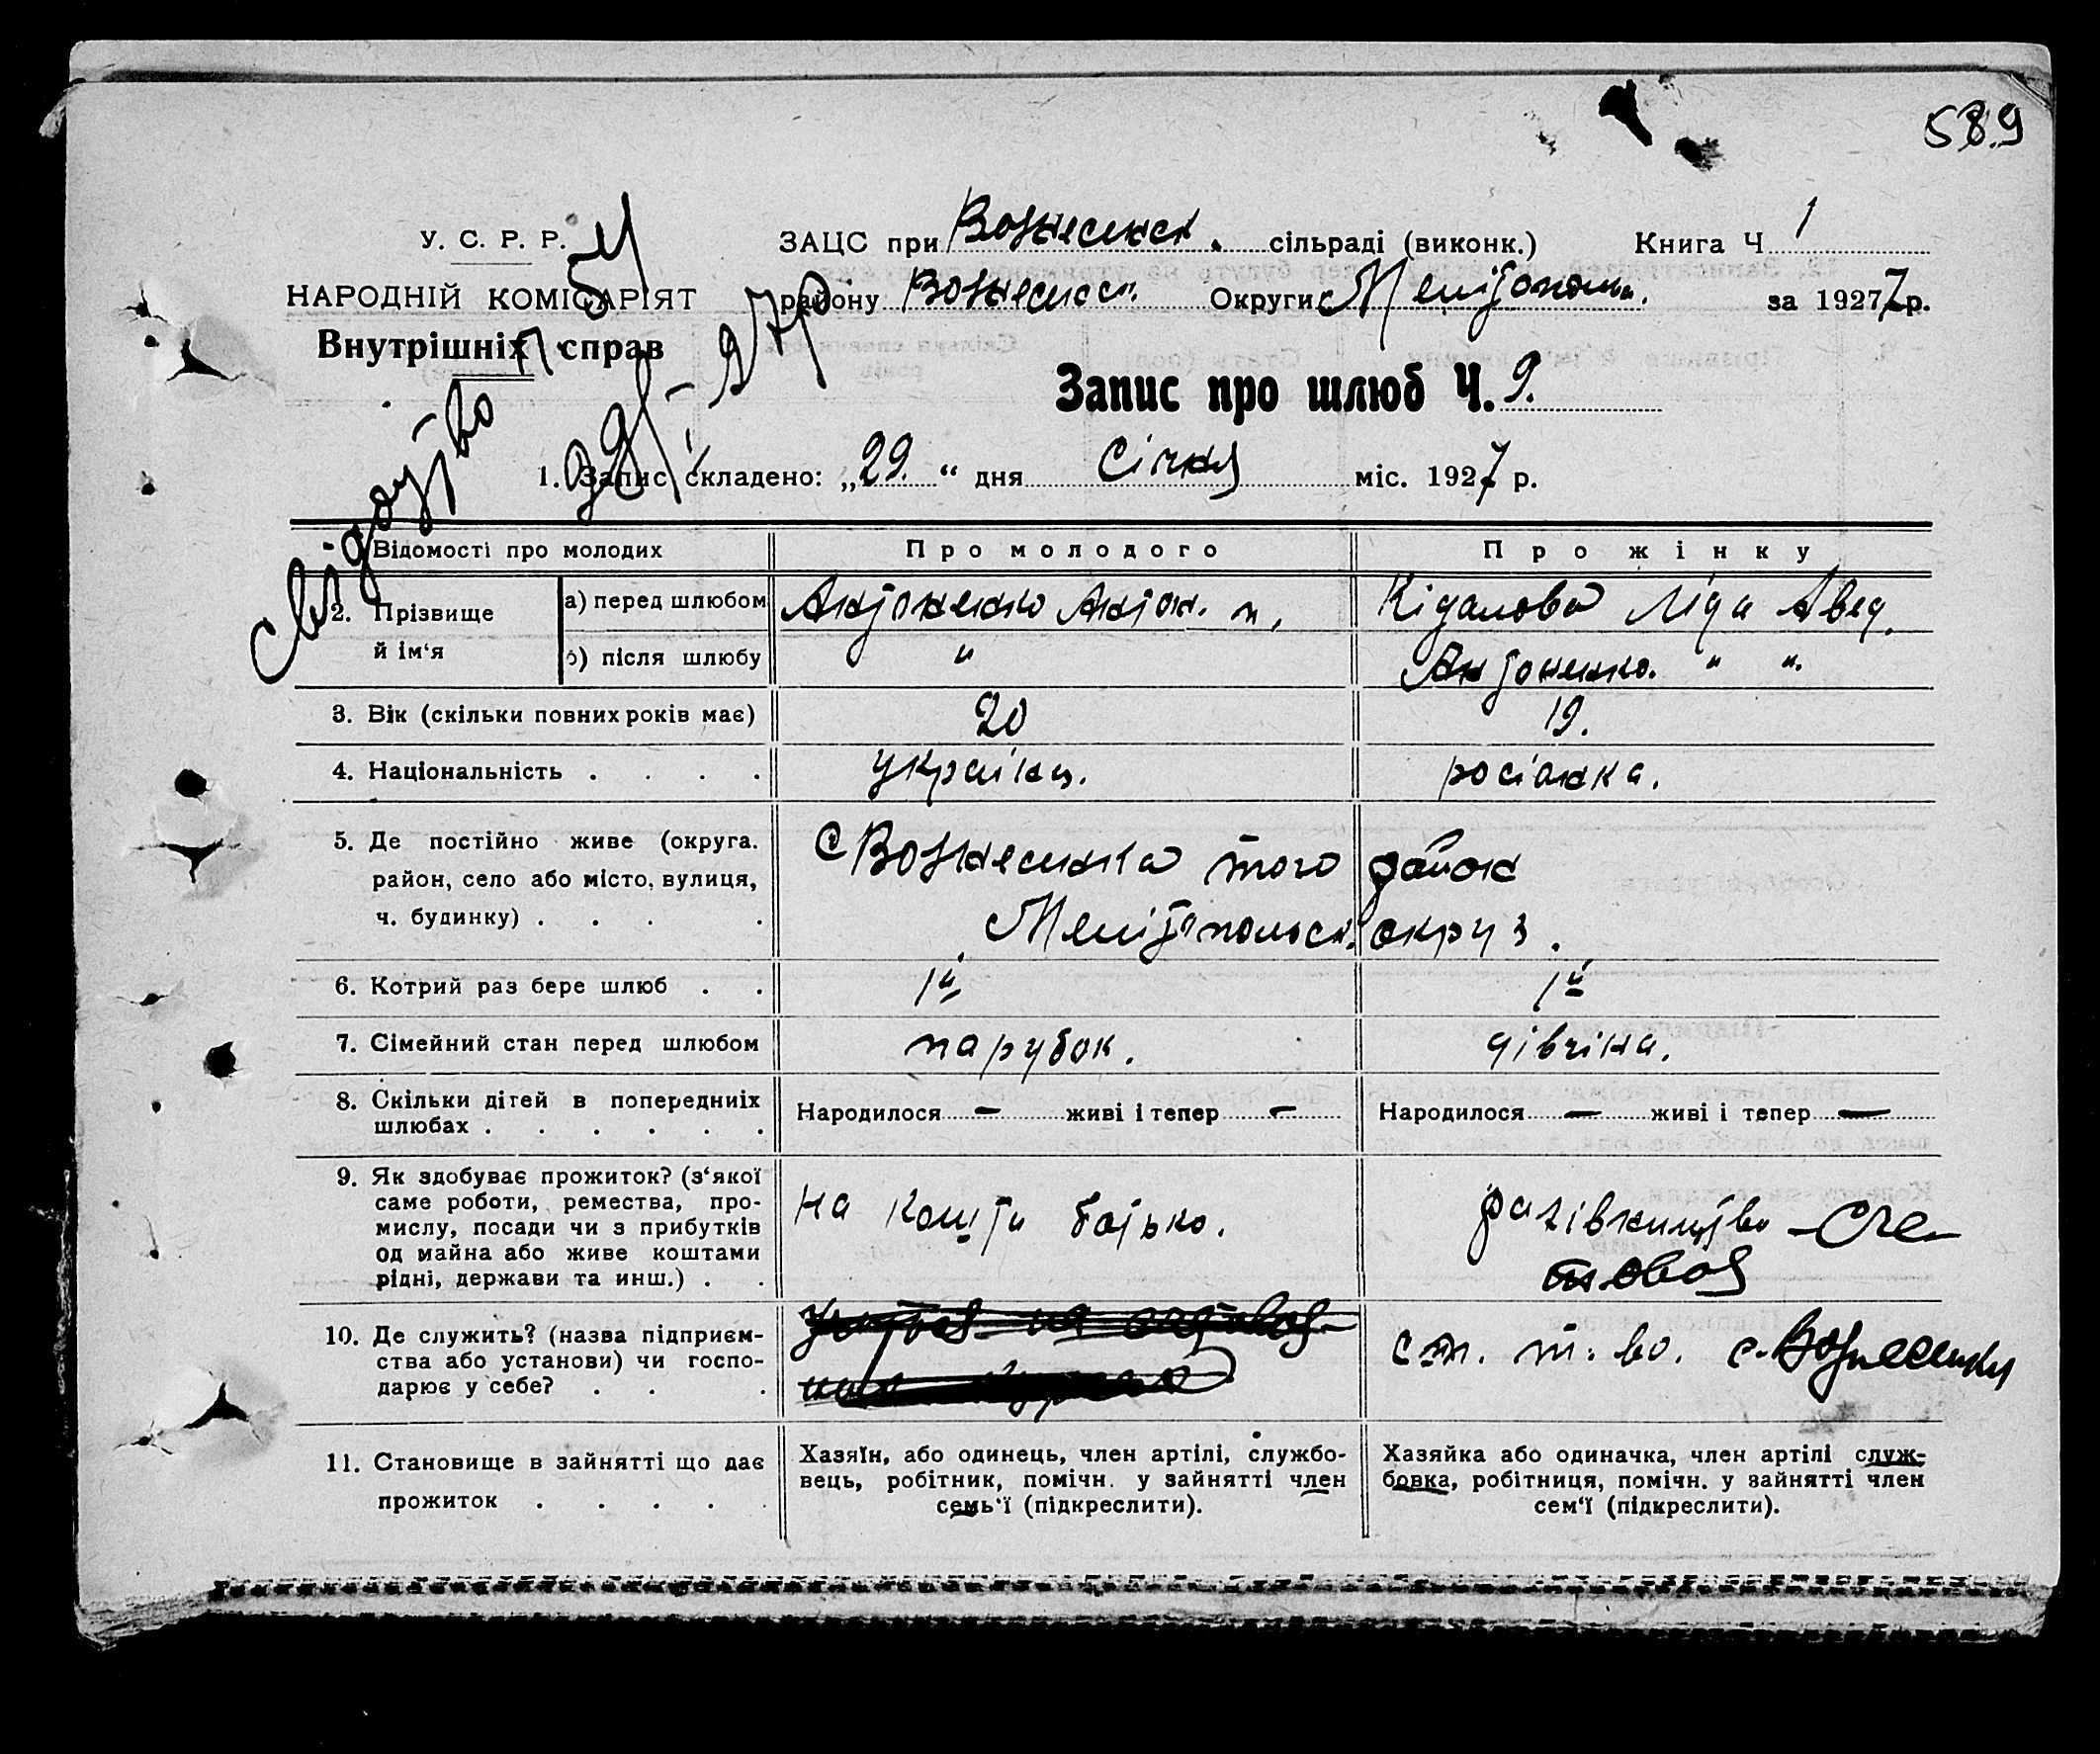 58.9
У. С. Р. Р.
НАРОДНІЙ КОМІСАРІЯТ
Внутрішніх справ
ЗАЦС при Вознесенск. сільраді (виконк.) Книга Ч 1
району Вознесенск. Округи Мелітополь. за 1927 7 р.
Запис про шлюб Ч. 9.
Свідоцтво 54
29/I-27р
1. Запис складено: „29.“ дня Січня міс. 1927 р.
Відомості про молодих Про молодого Про жінку
2. Прізвище й ім‘я
а) перед шлюбом Антоненко Антон. п. Кідалова Ліда Авед.
б) після шлюбу " Антоненко. " ".
3. Вік (скільки повних років має) 20 19.
4. Національність . . . . україн. росіянка.
5. Де постійно живе (округа.
район, село або місто, вулиця,
ч. будинку) . . . .
с Вознесенка того район
Мелітопольск. округ.
6. Котрий раз бере шлюб . . 1й 1й
7. Сімейний стан перед шлюбом парубок. дівчіна.
8. Скільки дітей в попередниіх
шлюбах . . . . . .
Народилося – живі і тепер – Народилося — живі і тепер —
9. Як здобуває прожиток? (з‘якої
саме роботи, ремества, про-
мислу, посади чи з прибутків
од майна або живе коштами
рідні, держави та инш.) . .
на кошти батько.
рахівництво – Сче-
товод
10. Де служить? (назва підприєм-
ства або установи) чи госпо-
дарює у себе? . . .
ст. т. во. с. Вознесенки
11. Становище в зайнятті що дає
прожиток . . . . .
Хазяїн, або одинець, член артілі, службо-
вець, робітник, помічн. у зайнятті член
семь‘ї (підкреслити).
Хазяйка або одиначка, член артілі служ-
бовка, робітниця, помічн. у зайнятті член
сем‘ї (підкреслити).